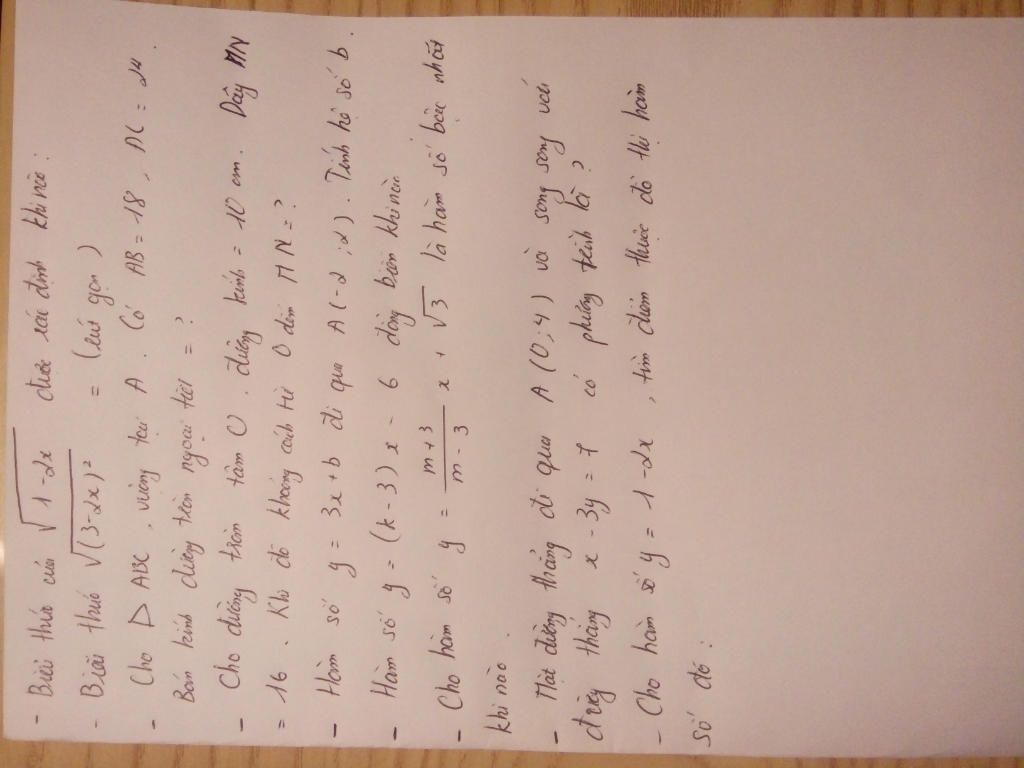 - Biểu thức của √1-2x được xác định khi nào:
- Biểu thức √(3-2x)² = (rút gọn)
- Cho Δ ABC, vuông tại A. Có AB = 18, AC = 24.
Bán kính đường tròn ngoại tiếp = ?
- Cho đường tròn tâm O. đường kính = 10 cm. Dây MN
= 16. Khi đó khoảng cách từ O đến MN = ?
- Hàm số y = 3x + b đi qua A(-2;2). Tính hệ số b.
- Hàm số y = (k-3)x - 6 đồng biến khi nào
- Cho hàm số y = m+3/m-3 x + √3 là hàm số bậc nhất
khi nào.
- Một đường thẳng đi qua A(0;4) và song song với
đường thẳng x - 3y = 7 có phương trình là ?
- Cho hàm số y = 1 - 2x, tìm điểm thuộc đồ thị hàm
số đó: